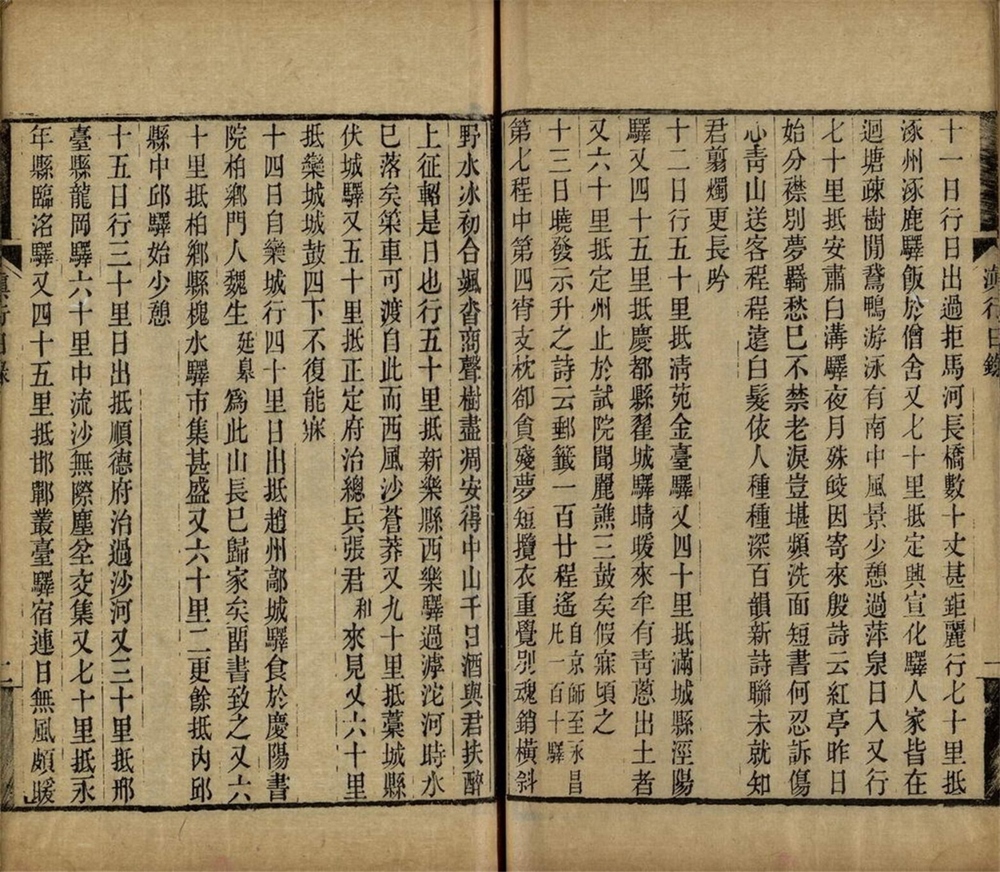 十一日行日出過拒馬河長橋數十丈甚鉅麗行七十里抵
涿州涿鹿驛飯於僧舍又七十里抵定興宣化驛人家皆在
迴塘疎樹閒鵞鴨游泳有南中風景少憩過萍泉日入又行
七十里抵安肅白溝驛夜月殊皎因寄來殷詩云紅亭昨日
始分襟別夢羇愁巳不禁老淚豈堪頻洗面短書何忍訴傷
心靑山送客程程遠白髮依人種種深百韻新詩聯未就知
君翦燭更長吟
十二日行五十里抵淸苑金臺驛又四十里抵滿城縣涇陽
驛又四十五里抵慶都縣翟城驛晴暖來牟有靑蔥出土者
又六十里抵定州止於試院聞麗譙三鼓矣假寐頃之
十三日曉發示升之詩云郵籤一百廿程遙自京師至永昌凡一百十驛
第七程中第四宵支枕卻貪殘夢短攬衣重覺別魂銷橫斜
滇行日錄
一
野水冰初合颯沓商聲樹盡凋安得中山千日酒與君扶醉
上征軺是日也行五十里抵新樂縣西樂驛過滹沱河時水
巳落矣筞車可渡自此而西風沙蒼莽又九十里抵藁城縣
伏城驛又五十里抵正定府治總兵張君和來見又六十里
抵欒城城鼓四下不復能寐
十四日自欒城行四十里日出抵趙州鄗城驛食於慶陽書
院柏鄉門人魏生延臯爲此山長巳歸家矣畱書致之又六
十里抵柏鄉縣槐水驛市集甚盛又六十里二更餘抵內邱
縣中邱驛始少憩
十五日行三十里日出抵順德府治過沙河又三十里抵邢
臺縣龍岡驛六十里中流沙無際塵坌交集又七十里抵永
年縣臨洺驛又四十五里抵邯鄲叢臺驛宿連日無風頗暖
滇行日錄
二